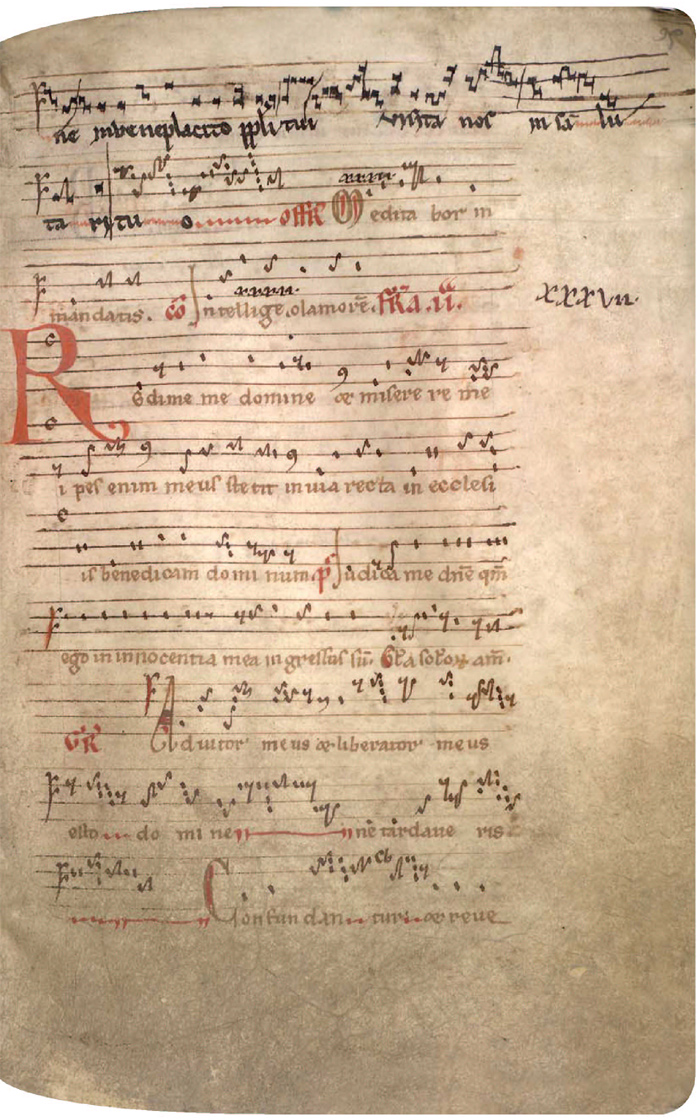 ne inbeneplacito ppłi tui visita nos in sa lu
ta ri tu o offR Medita bor in
mandatis. cō Intellige clamorē. FRa. ii. xxxvii.
Redime me domine & misere re me
i pes enim meus stetit inuia recta in ecclesi
is benedicam domi num. p̄ Iudica me dn̄e qm̄
ego in innocentia mea ingressus sū. Gl̃a sclorꝝ am̄.
GR Adiutor meus & liberator meus
esto do mi ne ne tardaue ris
Confundan tur & reue